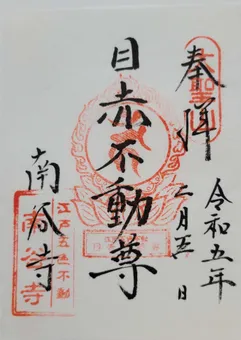 奉拝
令和五年
二月五日
目赤不動尊
南谷寺
江戸五色不動
南谷寺